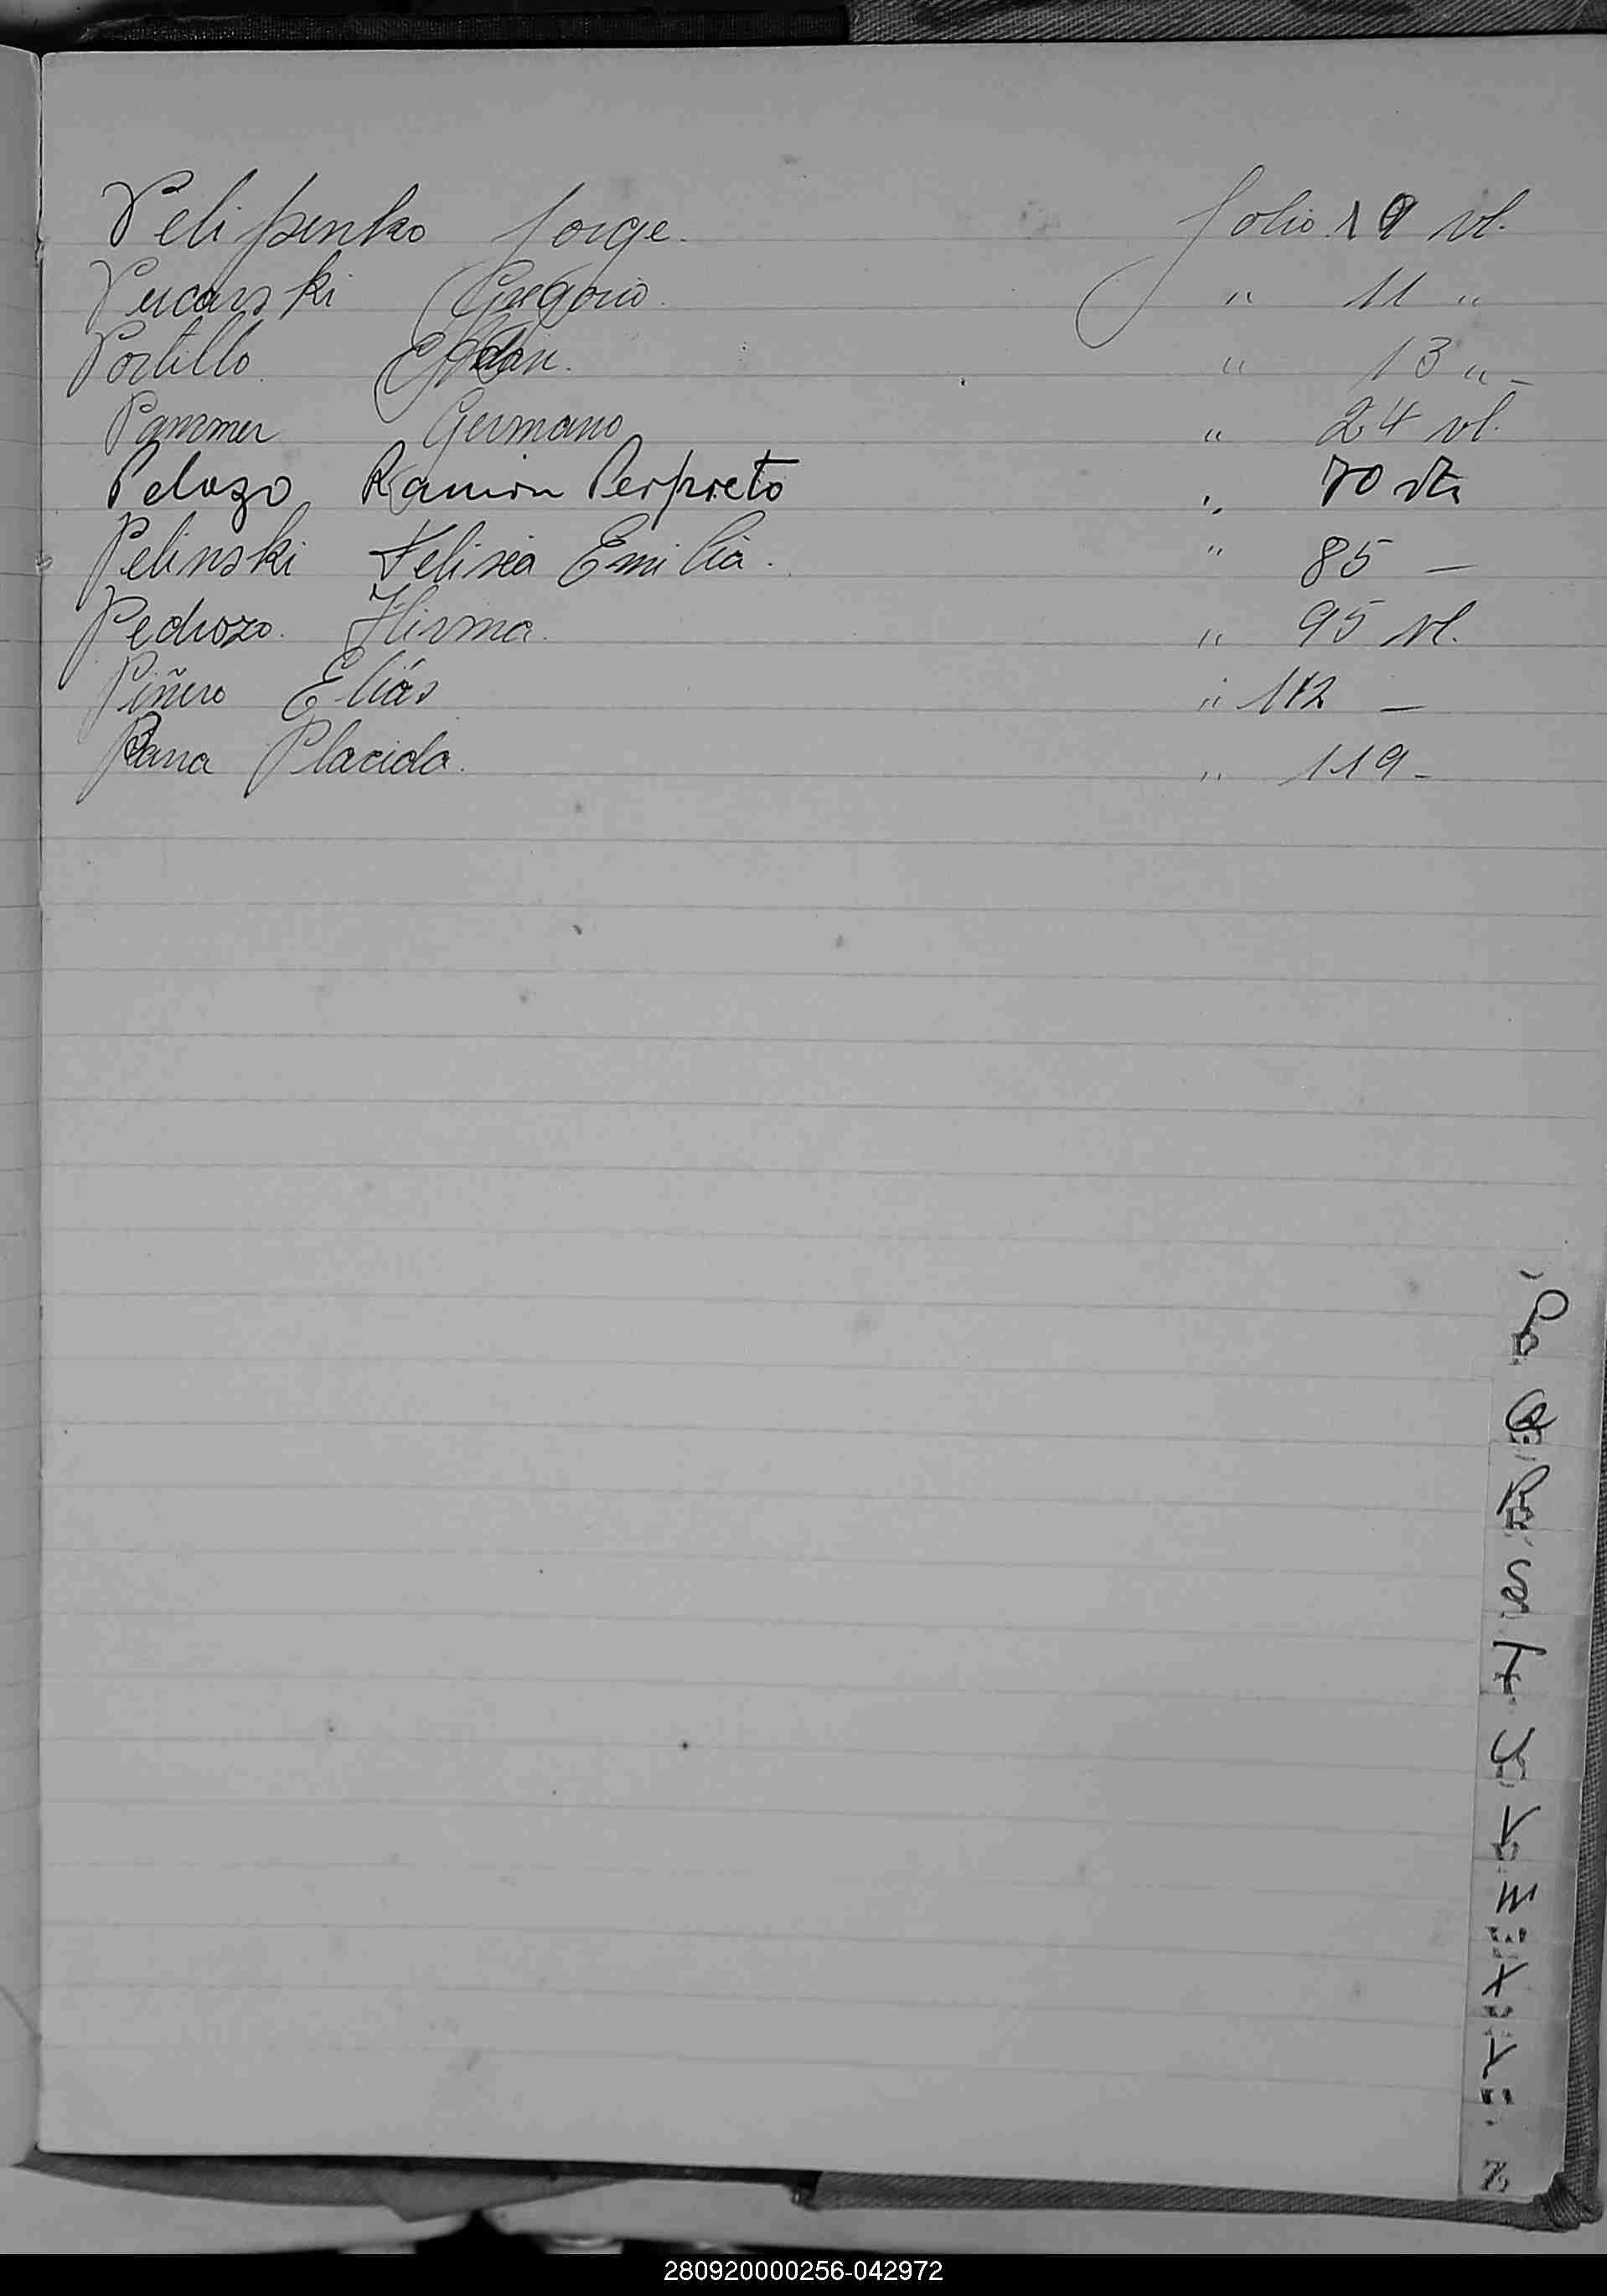 Pelipenko Jorge. folio 19 vl.
Pucarski Gregorio. " 11 "
Portillo " 13 " -
Pammer Germano " 24 vl.
Pelozo Ramon Perpieto " 70 vta
Pelinski Felisia Emilia. " 85 -
Pedrozo. Hirma. " 95 vl.
Piñero Eliás " 112 -
Pana Placida. " 119 -
P
Q
R
S
T
U
V
W
X
Y
Z
280920000256-042972